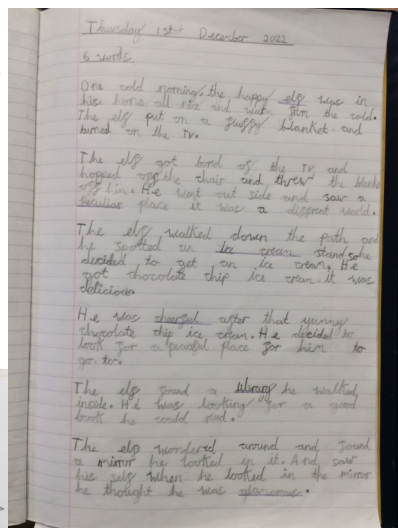 Thursday 1st December 2022
5 words
One cold morning the happy elf was in
his home all nice and warm from the cold.
The elf put on a fluffy blanket and
turned on the Tv.
The elf got bord of the Tv and
hopped off the chair and threw the blanket
off him. He went out side and saw a
peculiar place it was a diffrent world.
The elf walked down the path and
he spotted an ice cream stand so he
decided to get an ice cream. He
got chocolate chip ice cream it was
delicious
He was cheerful after that yummy
chocolate chip ice cream. He decided to
look for a peaceful place for him to
go to.
The elf found a library he walked
inside. He was looking for a good
book he could read.
The elf wondered around and found
a mirror he looked in it. And saw
his self when he looked in the mirror
he thought he was glamorous.